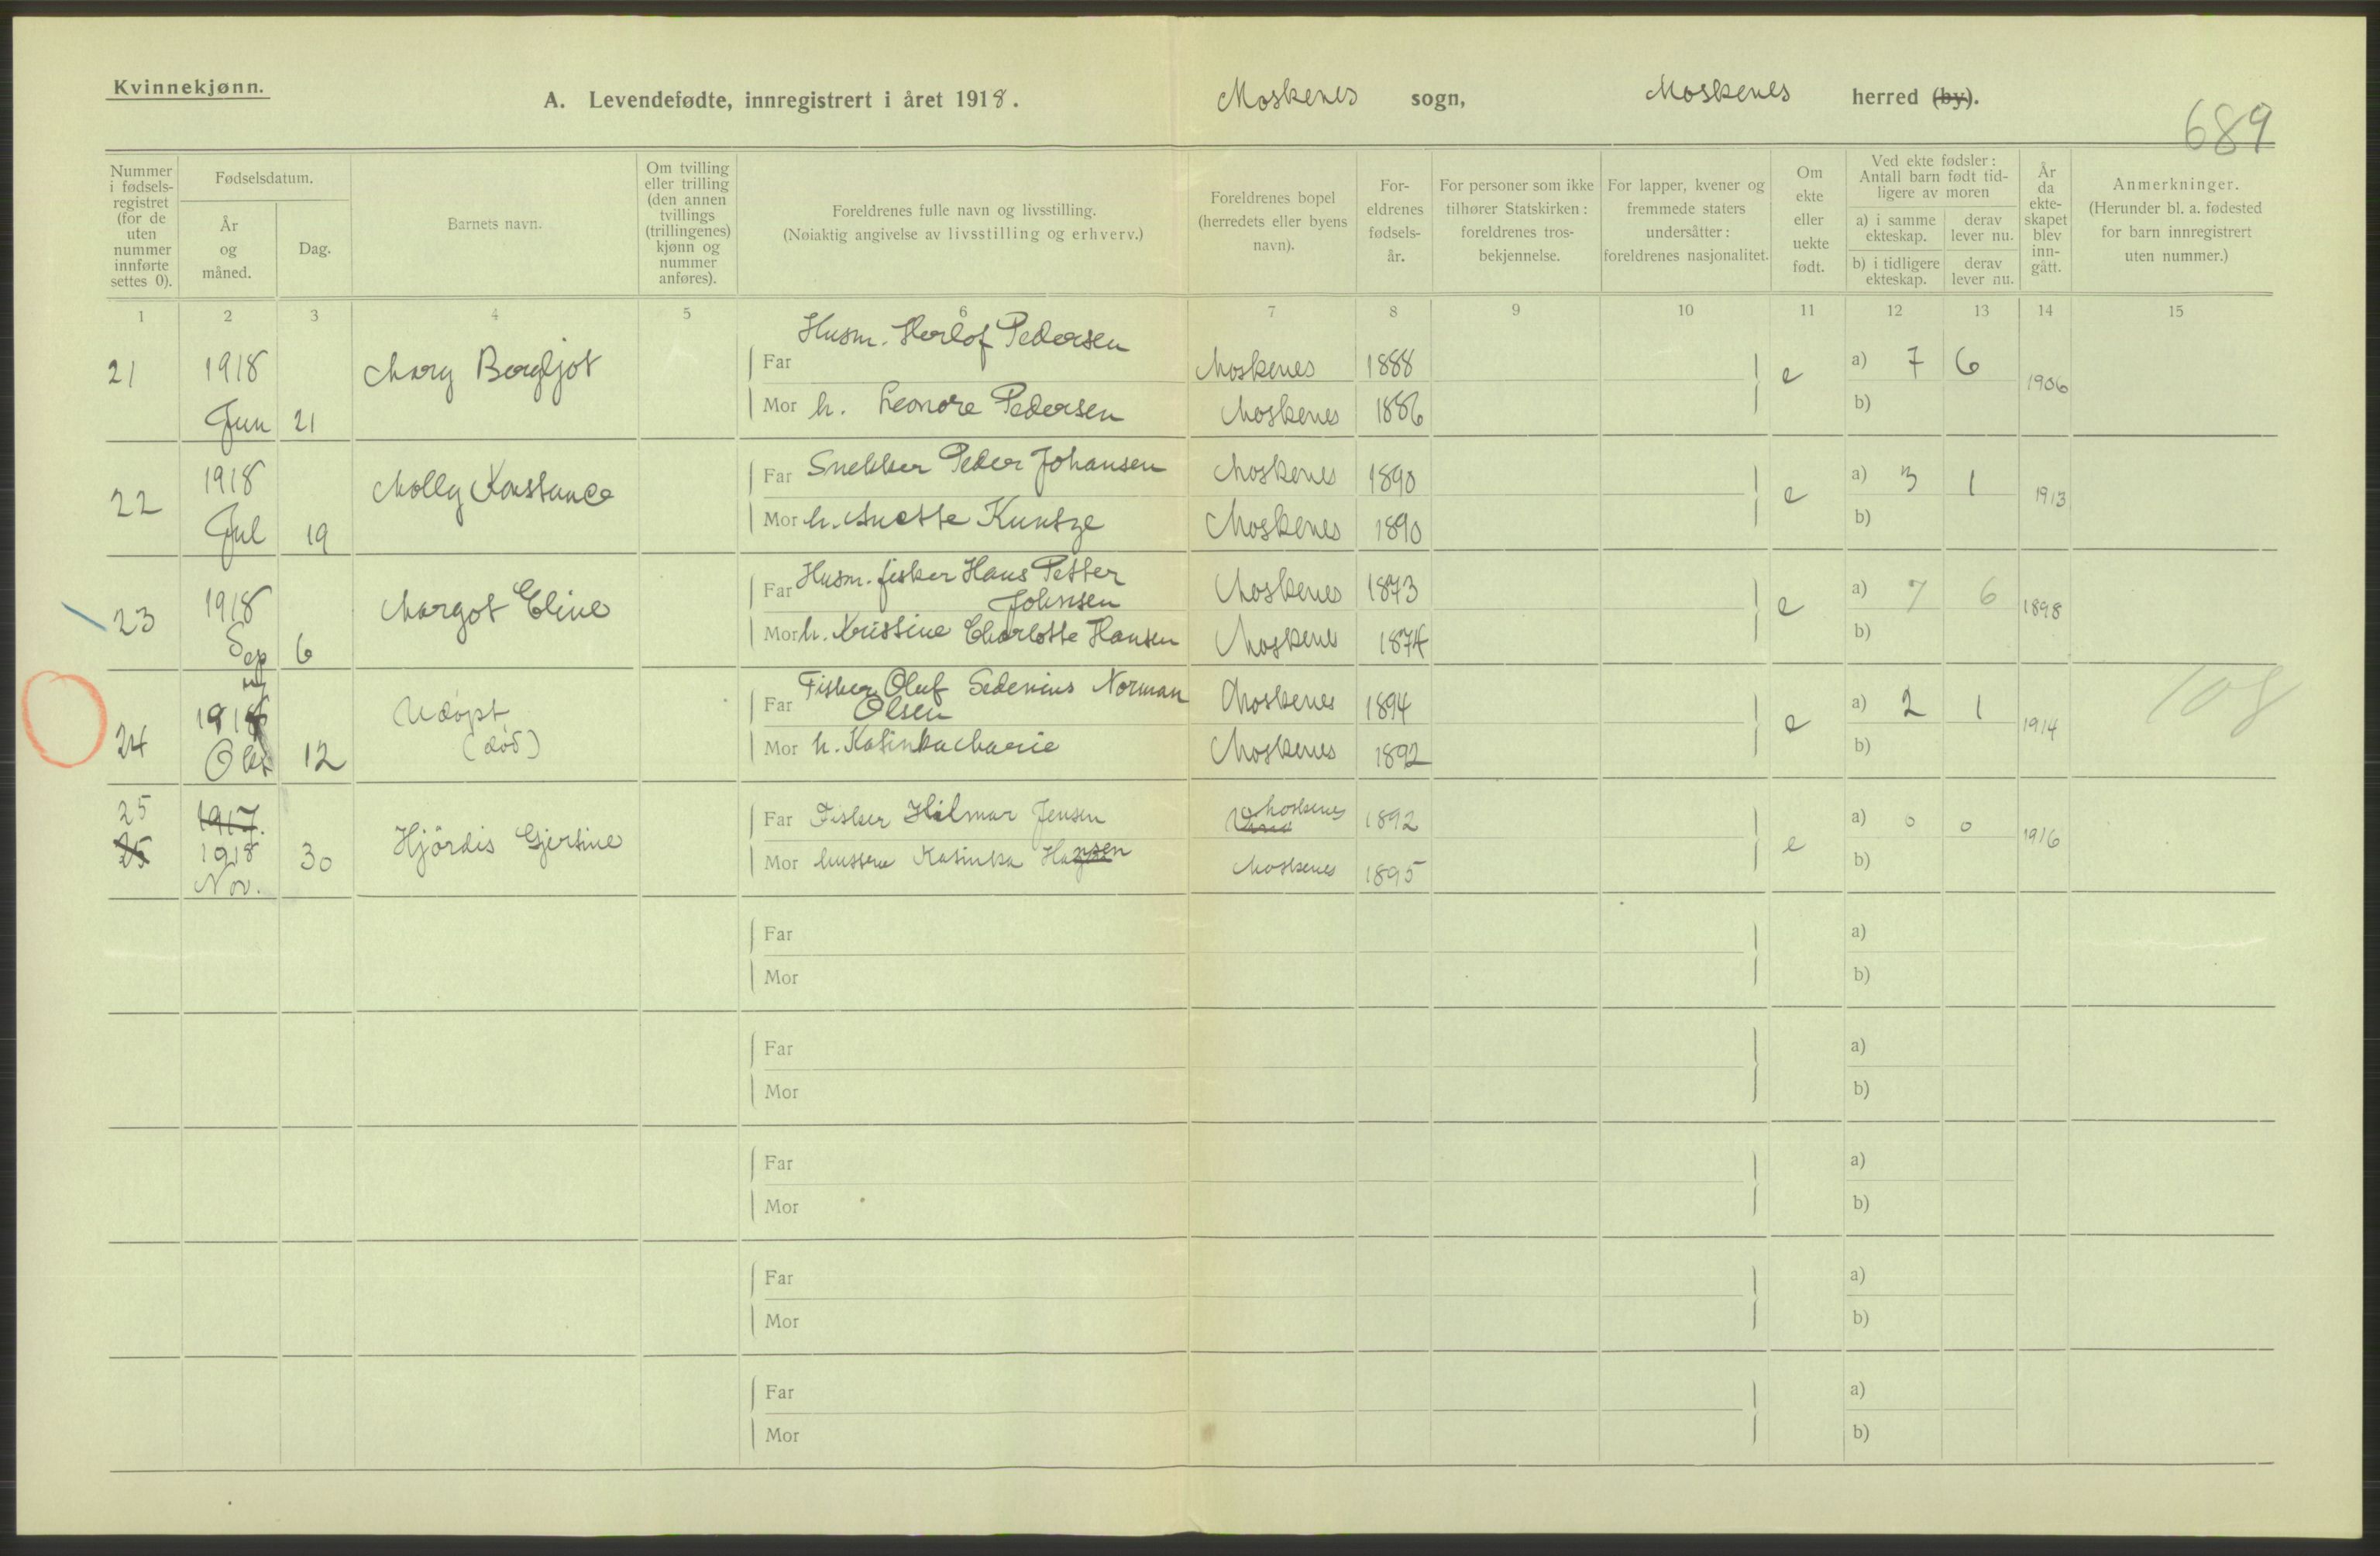 Kvinnekjønn.
A. Levendefødte, innregistrert i året 1918.
Moskenes sogn, Moskenes herred (by).
689
Nummer i fødsels-registret (for de uten nummer innførte settes 0).
Fødselsdatum.
År og måned.
Dag.
Barnets navn.
Om tvilling eller trilling (den annen tvillings (trillingenes) kjønn og nummer anføres).
Foreldrenes fulle navn og livsstilling.
(Nøiaktig angivelse av livsstilling og erhverv.)
Foreldrenes bopel (herredets eller byens navn).
For-eldrenes fødsels-år.
For personer som ikke tilhører Statskirken: foreldrenes tros-bekjennelse.
For lapper, kvener og fremmede staters undersåtter: foreldrenes nasjonalitet.
Om ekte eller uekte født.
Ved ekte fødsler: Antall barn født tid-ligere av moren
a) i samme ekteskap.
derav lever nu.
b) i tidligere ekteskap.
derav lever nu.
År da ekte-skapet blev inn-gått.
Anmerkninger.
(Herunder bl. a. fødested for barn innregistrert uten nummer.)
1 2 3 4 5 6 7 8 9 10 11 12 13 14 15
21 1918 Jun 21 Mary Bergljot
Far Husm. Herlof Pedersen Moskenes 1888
Mor h. Leonore Pedersen Moskenes 1886
e a) 7 6 1906
b)
22 1918 Jul 19 Molly Konstance
Far Snekker Peder Johansen Moskenes 1890
Mor h. Anette Kuntze Moskenes 1890
e a) 3 1 1913
b)
23 1918 Sep 6 Margot Eline
Far Husm. fisker Hans Petter Johnsen Moskenes 1873
Mor h. Kristine Charlotte Hansen Moskenes 1874
e a) 7 6 1898
b)
24 1918 Okt 12 Udøpt (død)
Far Fisker Oluf Sedenius Norman Olsen Moskenes 1894
Mor h. Katinka Marie Moskenes 1892
e a) 2 1 1914
b)
108
25 25 1917. 1918 Nov. 30 Hjördis Gjertine
Far Fisker Hilmar Jensen Moskenes 1892
Mor hustru Katinka Hansen Moskenes 1895
e a) 0 0 1916
b)
Far a)
Mor b)
Far a)
Mor b)
Far a)
Mor b)
Far a)
Mor b)
Far a)
Mor b)